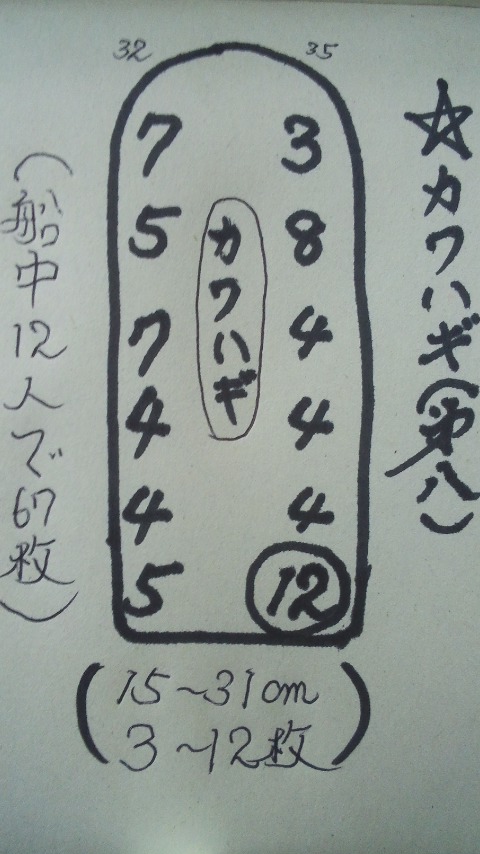 ☆カワハギ(第八)
32 35
7 3
5 8
カワハギ
7 4
4 4
4 4
5 12
(船中12人で67枚)
(15~31cm
3~12枚)